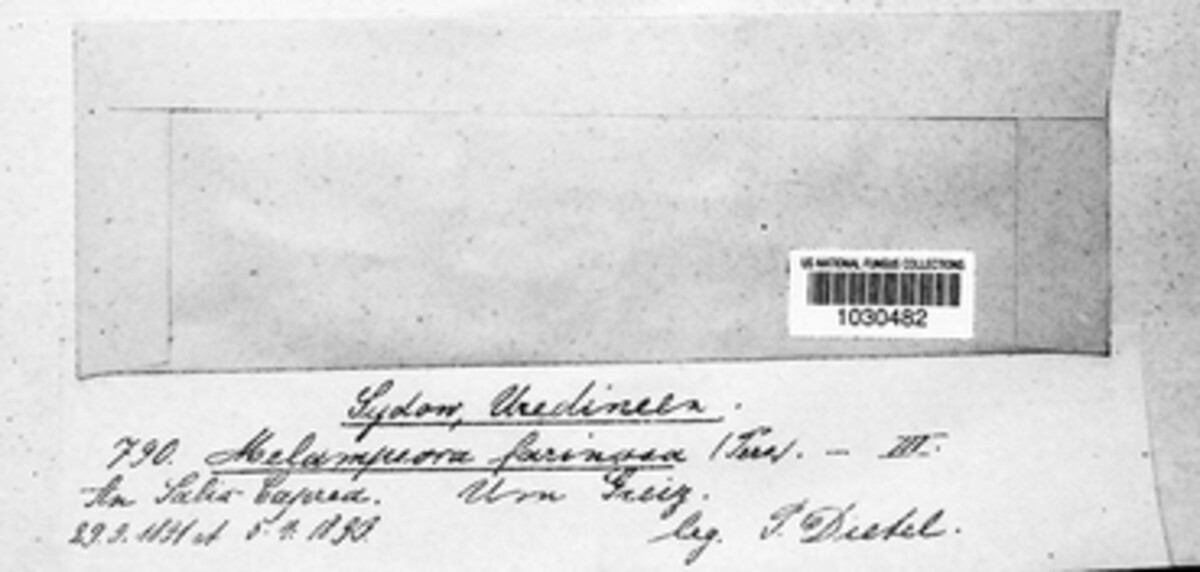 US NATIONAL FUNGUS COLLECTIONS
1030482
Sydow, Uredineen.
790. Melampsora farinosa (Pers). — III.
An Salix Caprea. Um Greiz.
29.9. 1891 et 5.9. 1893.
leg. P. Dietel.